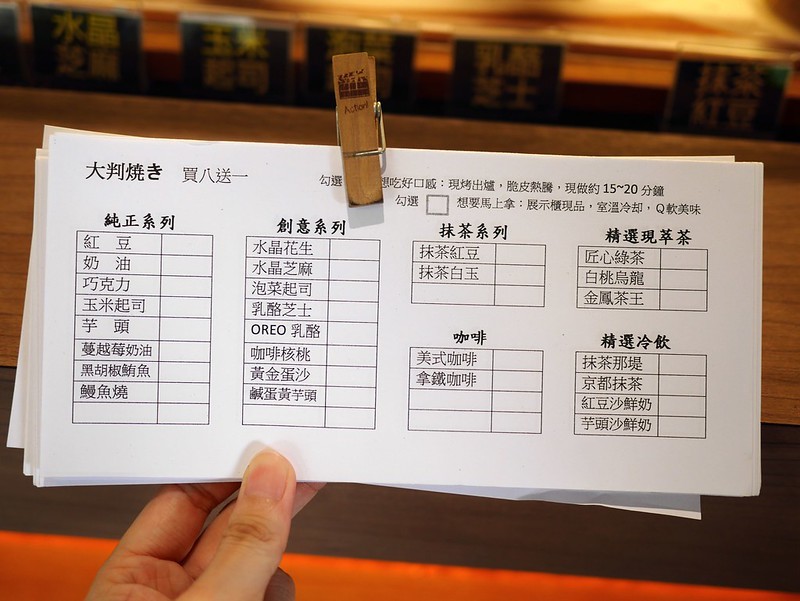 水晶
芝麻
玉米
起司
起司
乳酪
芝士
抹茶
紅豆
Action!
大判焼き 買八送一
勾選 想吃好口感：現烤出爐，脆皮熱騰，現做約 15~20 分鐘
勾選 想要馬上拿：展示櫃現品，室溫冷却，Ｑ軟美味
純正系列
紅 豆
奶 油
巧克力
玉米起司
芋 頭
蔓越莓奶油
黑胡椒鮪魚
鰻魚燒
創意系列
水晶花生
水晶芝麻
泡菜起司
乳酪芝士
OREO 乳酪
咖啡核桃
黃金蛋沙
鹹蛋黃芋頭
抹茶系列
抹茶紅豆
抹茶白玉
咖啡
美式咖啡
拿鐵咖啡
精選現萃茶
匠心綠茶
白桃烏龍
金鳳茶王
精選冷飲
抹茶那堤
京都抹茶
紅豆沙鮮奶
芋頭沙鮮奶